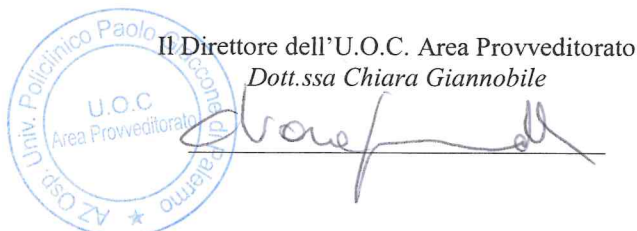 Il Direttore dell'U.O.C. Area Provveditorato
Dott.ssa Chiara Giannobile
AZ Osp. Univ. Policlinico Paolo Giaccone di Palermo
U.O.C
Area Provveditorato